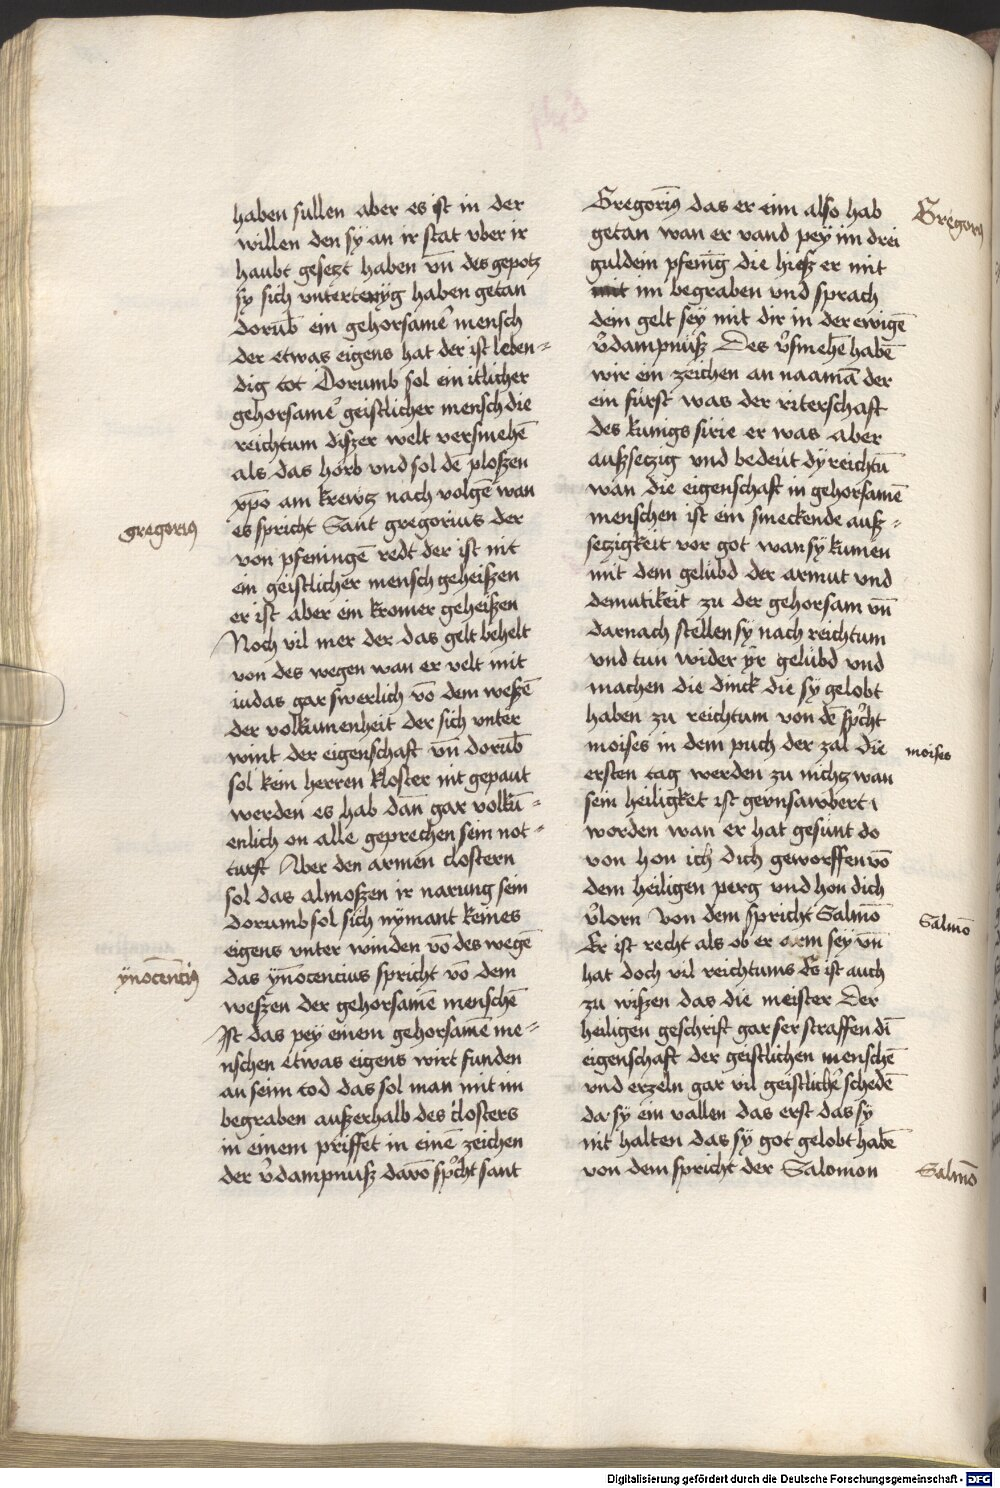 haben sullen aber es ist in der
willen den sy an ir stat vber ir
haubt gesetzt haben vn̄ des gepotz
sy sich vntertenyg haben getan
dorūb ein gehorsamer mensch
der etwas eigens hat der ist leben=
dig tot Dorumb sol ein itlicher
gehorsamer geistlicher mensch die
reichtum diszer welt versmehē
als das horb vnd sol dē ploszen
xp̄o am krewtz nach volgē wan
gregorius
es spricht Sant gregorius der
von pfeningē redt der ist nit
ein geistlicher mensch geheiszen
er ist aber ein kromer geheiszen
Noch vil mer der das gelt behelt
von des wegen wan er velt mit
iudas gar swerlich vō dem weszē
der volkumenheit der sich vnter
wint der eigenschaft vn̄ dorūb
sol kein herren kloster nit gepaut
werden es hab dan gar volkū=
enlich on alle geprechen sein not=
turft Aber den armen clostern
sol das almoszen ir narung sein
dorumb sol sich nymant keines
eigens vnter winden vō des wegē
ynocēncius
das yn̄ocencius spricht vō dem
weszen der gehorsamē menschē
Ist das pey einem gehorsamē me=
nschen etwas eigens wirt funden
an seim tod das sol man mit im
begraben auszerhalb des closters
in einem priffet in einē zeichen
der v̄dampnusz davō sp̄cht sant
Gregorius das er eim also hab
Gregorius
getan wan er vand pey im drei
guldem pfenig die hiesz er mit
im begraben vnd sprach
dem gelt sey mit dir in der ewigē
v̄dampnusz Des v̄smehē habē
wir ein zeichen an naamā der
ein furst was der riterschaft
des kunigs sirie er was aber
auszsetzig vnd bedeut dy reichtū
wan die eigenschaft in gehorsamē
menschen ist ein smeckende ausz=
setzigkeit vor got wan sy kumen
mit dem gelubd der armut vnd
demutikeit zu der gehorsam vn̄
darnach stellen sy nach reichtum
vnd tun wider yr gelubd vnd
machen die dinck die sy gelobt
haben zu reichtum von dē sp̄cht
moises in dem puch der zal die
moises
ersten tag werden zu nichtz wan
sein heiligket ist gevnsawbert
worden wan er hat gesunt do
von hon ich dich geworffen vō
dem heiligen perg vnd hon dich
v̄lorn Von dem spricht Salmō
Salmō
Er ist recht als ob er arm sey vn̄
hat doch vil reichtums Es ist auch
zu wiszen das die meister der
heiligen geschrift gar ser straffen di
eigenschaft der geistlichen menschē
vnd erzeln gar vil geistlicher schedē
da sy ein vallen das erst das sy
nit halten das sy got gelobt habē
von dem spricht der Salomon
Salmō
Digitalisierung gefördert durch die Deutsche Forschungsgemeinschaft - DFG